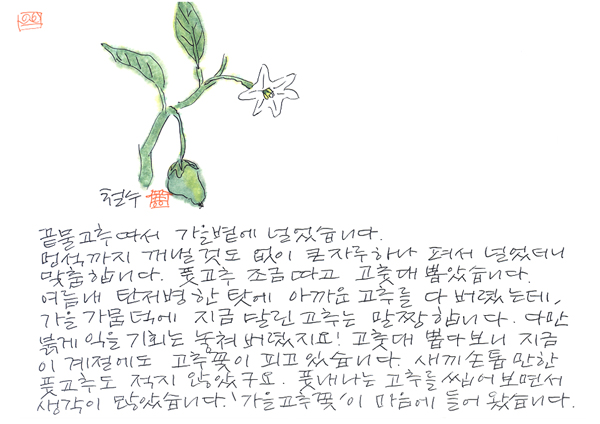 철수
끝물고추 따서 가을볕에 널었습니다.
멍석까지 꺼낼것도 없이 큰자루하나 펴서 널었더니
맞춤합니다. 풋고추 조금따고 고춧대 뽑았습니다.
여름내 탄저병한 탓에 아까운 고추를 다 버렸는데,
가을가뭄 덕에 지금 달린 고추는 말짱합니다. 다만
붉게 익을 기회는 놓쳐버렸지요! 고춧대 뽑다보니 지금
이 계절에도 고추꽃이 피고 있습니다. 새끼손톱만한
풋고추도 적지 않았구요. 풋내나는 고추를 씹어보면서
생각이 많았습니다. '가을고추꽃'이 마음에 들어 왔습니다.